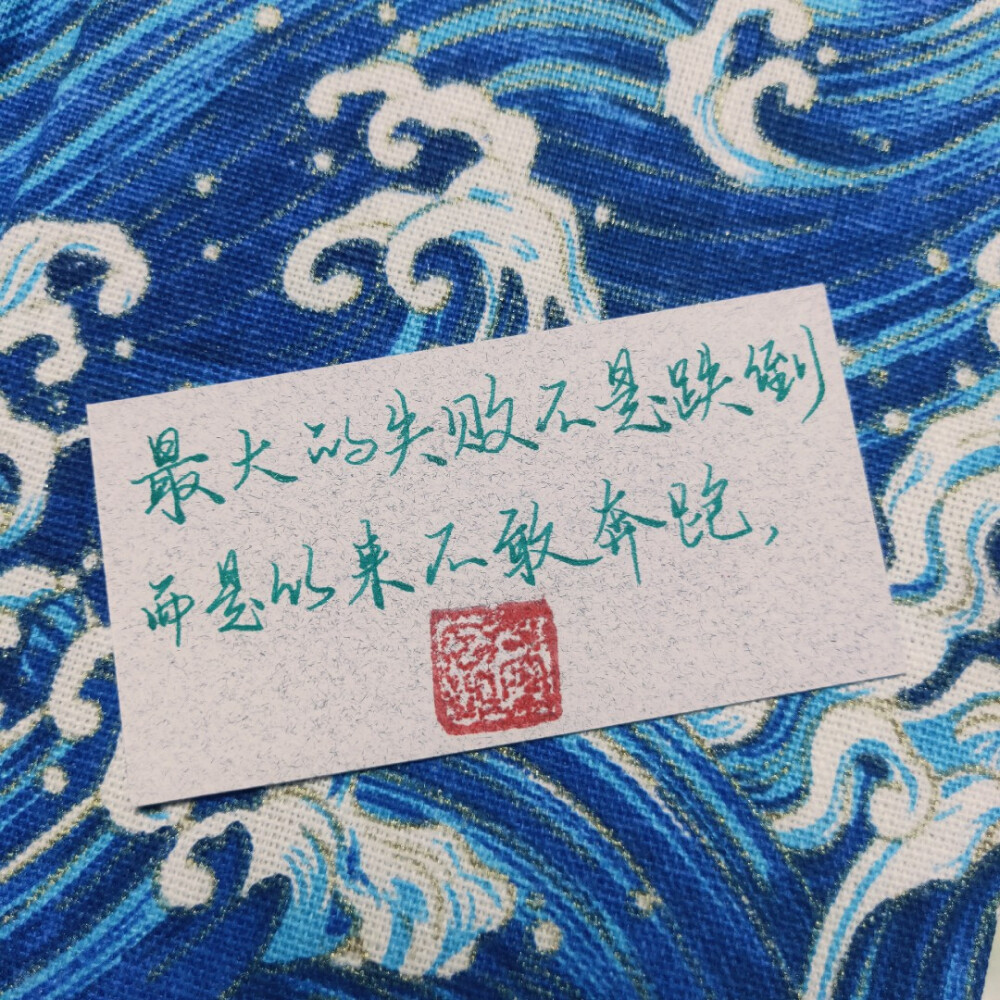 最大的失败不是跌倒
而是从来不敢奔跑，